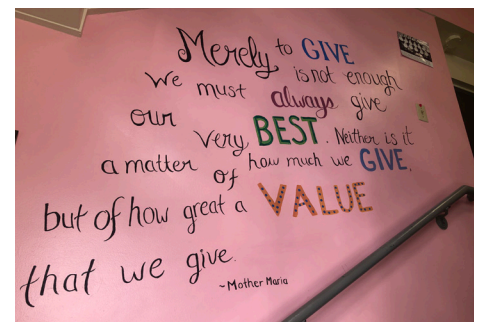 Merely to GIVE
is not enough
We must always give
our very BEST. Neither is it
a matter of how much we GIVE,
but of how great a VALUE
that we give.
~Mother Maria